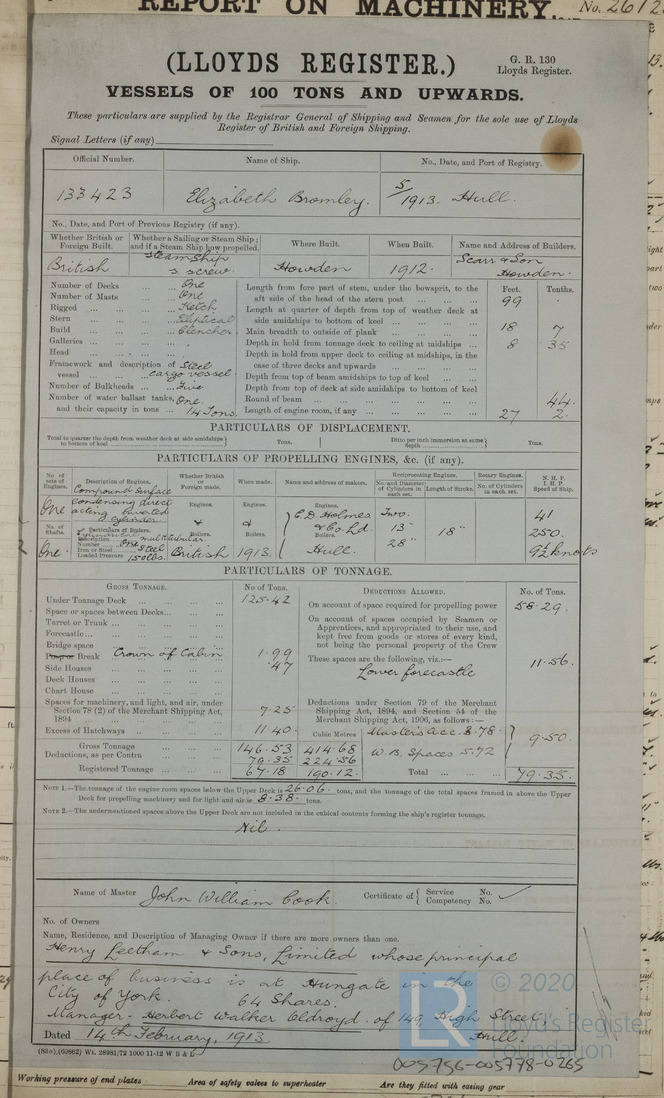 REPORT ON MACHINERY.
No. 2612
(LLOYDS REGISTER.)
G. R. 130
Lloyds Register.
VESSELS OF 100 TONS AND UPWARDS.
These particulars are supplied by the Registrar General of Shipping and Seamen for the sole use of Lloyds
Register of British and Foreign Shipping.
Signal Letters (if any)
Official Number. Name of Ship. No., Date, and Port of Registry.
133423 Elizabeth Bromley. 5/1913. Hull.
No., Date, and Port of Previous Registry (if any).
Whether British or Foreign Built. Whether a Sailing or Steam Ship; and if a Steam Ship how propelled. Where Built. When Built. Name and Address of Builders.
British Steam Ship s screw. Howden 1912. Scarr & Son Howden.
Number of Decks ... ... One
Number of Masts ... ... One
Rigged ... ... ... Ketch
Stern ... ... ... Elliptical
Build ... ... ... Clencher.
Galleries ... ... ...
Head ... ... ...
Framework and description of vessel ... ... Steel cargo vessel.
Number of Bulkheads ... Five
Number of water ballast tanks, One.
and their capacity in tons ... 14 Tons.
Feet. Tenths.
Length from fore part of stem, under the bowsprit, to the
aft side of the head of the stern post ... ... ... 99
Length at quarter of depth from top of weather deck at
side amidships to bottom of keel ... ... ... ...
Main breadth to outside of plank ... ... ... ... 18 7
Depth in hold from tonnage deck to ceiling at midships ... 8 35
Depth in hold from upper deck to ceiling at midships, in the
case of three decks and upwards ... ... ...
Depth from top of beam amidships to top of keel ... ...
Depth from top of deck at side amidships to bottom of keel
Round of beam ... ... ... ... ... ... 44.
Length of engine room, if any ... ... ... ... 27 2.
PARTICULARS OF DISPLACEMENT.
Total to quarter the depth from weather deck at side amidships to bottom of keel Tons. Ditto per inch immersion at same depth ... Tons.
PARTICULARS OF PROPELLING ENGINES, &c. (if any).
No. of sets of Engines. Description of Engines. Whether British or Foreign made. When made. Name and address of makers. Reciprocating Engines. Rotary Engines. N. H. P. I. H. P. Speed of Ship.
No. and Diameter of Cylinders in each set. Length of Stroke. No. of Cylinders in each set.
One Compound Surface condensing direct acting inverted cylinder
Engines. Engines. Engines.
No. of Shafts. Particulars of Boilers.
Description Cylindrical multitubular.
Number One
Iron or Steel Steel
Loaded Pressure 150 lbs.
One. & Boilers. British & Boilers. 1913. C. D. Holmes & Co Ld. Boilers. Hull.
Two. 13" 28" 18" 41 250. 9½ knots
PARTICULARS OF TONNAGE.
GROSS TONNAGE. No of Tons.
Under Tonnage Deck ... 125.42
Space or spaces between Decks... ... ...
Turret or Trunk ... ... ...
Forecastle ... ... ...
Bridge space
Poop or Break Crown of Cabin 1.99
Side Houses ... ... ... .47
Deck Houses ... ... ...
Chart House ... ... ...
Spaces for machinery, and light, and air, under
Section 78 (2) of the Merchant Shipping Act,
1894 ... ... ... 7.25
Excess of Hatchways ... ... 11.40.
Cubic Metres
Gross Tonnage 146.53 414.68
Deductions, as per Contra ... 79.35 224.56
Registered Tonnage ... ... 67.18 190.12.
DEDUCTIONS ALLOWED. No. of Tons.
On account of space required for propelling power 58.29.
On account of spaces occupied by Seamen or
Apprentices, and appropriated to their use, and
kept free from goods or stores of every kind,
not being the personal property of the Crew
These spaces are the following, viz.:— 11.56.
Lower forecastle
Deductions under Section 79 of the Merchant
Shipping Act, 1894, and Section 54 of the
Merchant Shipping Act, 1906, as follows:—
Master's acc. 3.78.
W. B. Spaces 5.72 9.50.
Total ... ... ... 79.35.
NOTE 1.—The tonnage of the engine room spaces below the Upper Deck is 26.06. tons, and the tonnage of the total spaces framed in above the Upper
Deck for propelling machinery and for light and air is 8.38. tons.
NOTE 2.—The undermentioned spaces above the Upper Deck are not included in the cubical contents forming the ship's register tonnage.
Nil.
Name of Master John William Cook. Certificate of { Service No. Competency No.
No. of Owners
Name, Residence, and Description of Managing Owner if there are more owners than one.
Henry Leetham & Sons, Limited whose principal
place of business is at Hungate in the
City of York. 64 Shares.
Manager - Herbert Walker Oldroyd. of 149, High Street,
Hull.
Dated 14th February, 1913
(S80),(60862) Wt. 28981/72 1000 11-12 W B & L
© 2020
LR
Lloyd's Register
Foundation
005756-005778-0265
Working pressure of end plates Area of safety valves to superheater Are they fitted with easing gear